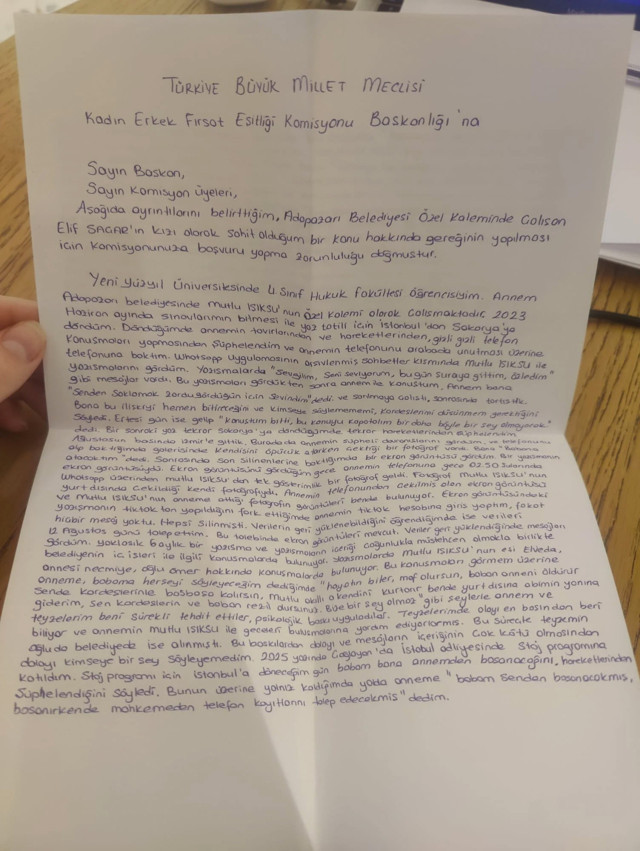 TÜRKİYE BÜYÜK MİLLET MECLİSİ
Kadın Erkek Fırsat Eşitliği Komisyonu Başkanlığı'na
Sayın Başkan,
Sayın Komisyon Üyeleri,
Aşağıda ayrıntılarını belirttiğim, Adapazarı Belediyesi Özel Kaleminde Çalışan
Elif SAĞAR'ın kızı olarak şahit olduğum bir konu hakkında gereğinin yapılması
için komisyonunuza başvuru yapma zorunluluğu doğmuştur.
Yeni Yüzyıl Üniversitesinde 4. Sınıf Hukuk Fakültesi öğrencisiyim. Annem
Adapazarı belediyesinde mutlu IŞIKSU'nun özel kalemi olarak Çalışmaktadır. 2023
Haziran ayında sınavlarımın bitmesi ile yaz tatili için İstanbul'dan Sakarya'ya
döndüm. Döndüğümde annemin tavırlarından ve hareketlerinden, gizli gizli telefon
Konuşmaları yapmasından Şüphelendim ve annemin telefonunu arabada unutması üzerine
telefonuna baktım. Whatsapp Uygulamasının arşivlenmiş sohbetler kısmında Mutlu IŞIKSU ile
yazışmalarını gördüm. Yazışmalarda "Sevgilim, Seni seviyorum, bugün şuraya gittim, özledim"
gibi mesajlar vardı. Bu yazışmaları gördükten sonra annem ile konuştum, Annem bana
"Senden Saklamak zorunda gördüğün için Sevindim" dedi ve sarılmaya çalıştı, sonrasında tartıştık.
Bana bu ilişkiyi hemen bitireceğini ve kimseye söylemememi, Kardeşlerimi düşünmem gerektiğini
Söyledi. Ertesi gün ise gelip "Konuştum bitti, bu konuyu kapatalım bir daha böyle bir şey olmayacak"
dedi. Bir sonraki yaz tekrar Sakarya'ya döndüğümde tekrar hareketlerinden şüphelendim
Ağustosun başında izmir'e gittik. Burada da annemin şüpheli davranışlarını gördüm, ve telefonunu
alıp baktığımda galerisinde kendisini öpücük atarken çektiği bir fotoğraf vardı. Bana "Babama
atacaktım" dedi. Sonrasında son silinenlerine baktığımda bir ekran görüntüsü gördüm. Bir yazışmanın
ekran görüntüsüydü. Ekran görüntüsünü gördüğüm gece annemin telefonuna gece 02.50 Sularında
Whatsapp üzerinden mutlu IŞIKSU'dan tek gösterimlik bir fotoğraf geldi. Fotoğraf mutlu IŞIKSU'nun
yurtdışında çekildiği kendi fotoğrafıydı. Annemin telefonundan çekilmiş olan ekran görüntüsü
ve Mutlu IŞIKSU'nun anneme attığı fotoğrafın görüntüleri bende bulunuyor. Ekran görüntüsündeki
yazışmanın tiktok'tan yapıldığını fark ettiğimde annemin tiktok hesabına giriş yaptım, fakat
hiçbir mesaj yoktu. Hepsi Silinmişti. Verilerin geri yüklenebildiğini öğrendiğimde ise verileri
12 Ağustos günü talep ettim. Bu talebinde ekran görüntüleri mevcut. Veriler geri yüklendiğinde mesajları
gördüm. Yaklaşık 6 aylık bir yazışma ve yazışmaların içeriği çoğunlukla müstehcen olmakla birlikte
belediyenin iç işleri ile ilgili konuşmalarda bulunuyor. Yazışmalarda Mutlu IŞIKSU'nun eşi Elveda,
annesi necmiye, oğlu ömer hakkında konuşmalarda bulunuyor. Bu konuşmaları görmem üzerine
anneme, babama herşeyi söyleyeceğim dediğimde "hayatın biter, mahvolursun, baban anneni öldürür
Sende kardeşlerinle başbaşa kalırsın, Mutlu akıllı o kendini kurtarır bende yurtdışına abimin yanına
giderim, sen kardeşlerin ve baban rezil olursunuz. Bize bir şey olmaz" gibi şeylerle annem ve
teyzelerim beni sürekli tehdit ettiler, psikolojik baskı uyguladılar. Teyzelerimde olayı en başından beri
biliyor ve annemin Mutlu IŞIKSU ile geceleri buluşmalarına yardım ediyorlarmış. Bu süreçte teyzemin
oğluda belediyede işe alınmıştı. Bu baskılardan dolayı ve mesajların içeriğinin Çok kötü olmasından
dolayı kimseye bir şey Söyleyemedim. 2025 yazında Çağlayan'da İstanbul adliyesinde Staj programına
katıldım. Staj programı için istanbul'a döneceğim gün babam bana annemden boşanacağını, hareketlerinden
Şüphelendiğini Söyledi. Bunun üzerine yalnız kaldığımda yolda anneme "babam Senden boşanacakmış,
boşanırkende mahkemeden telefon kayıtlarını talep edecekmiş" dedim.